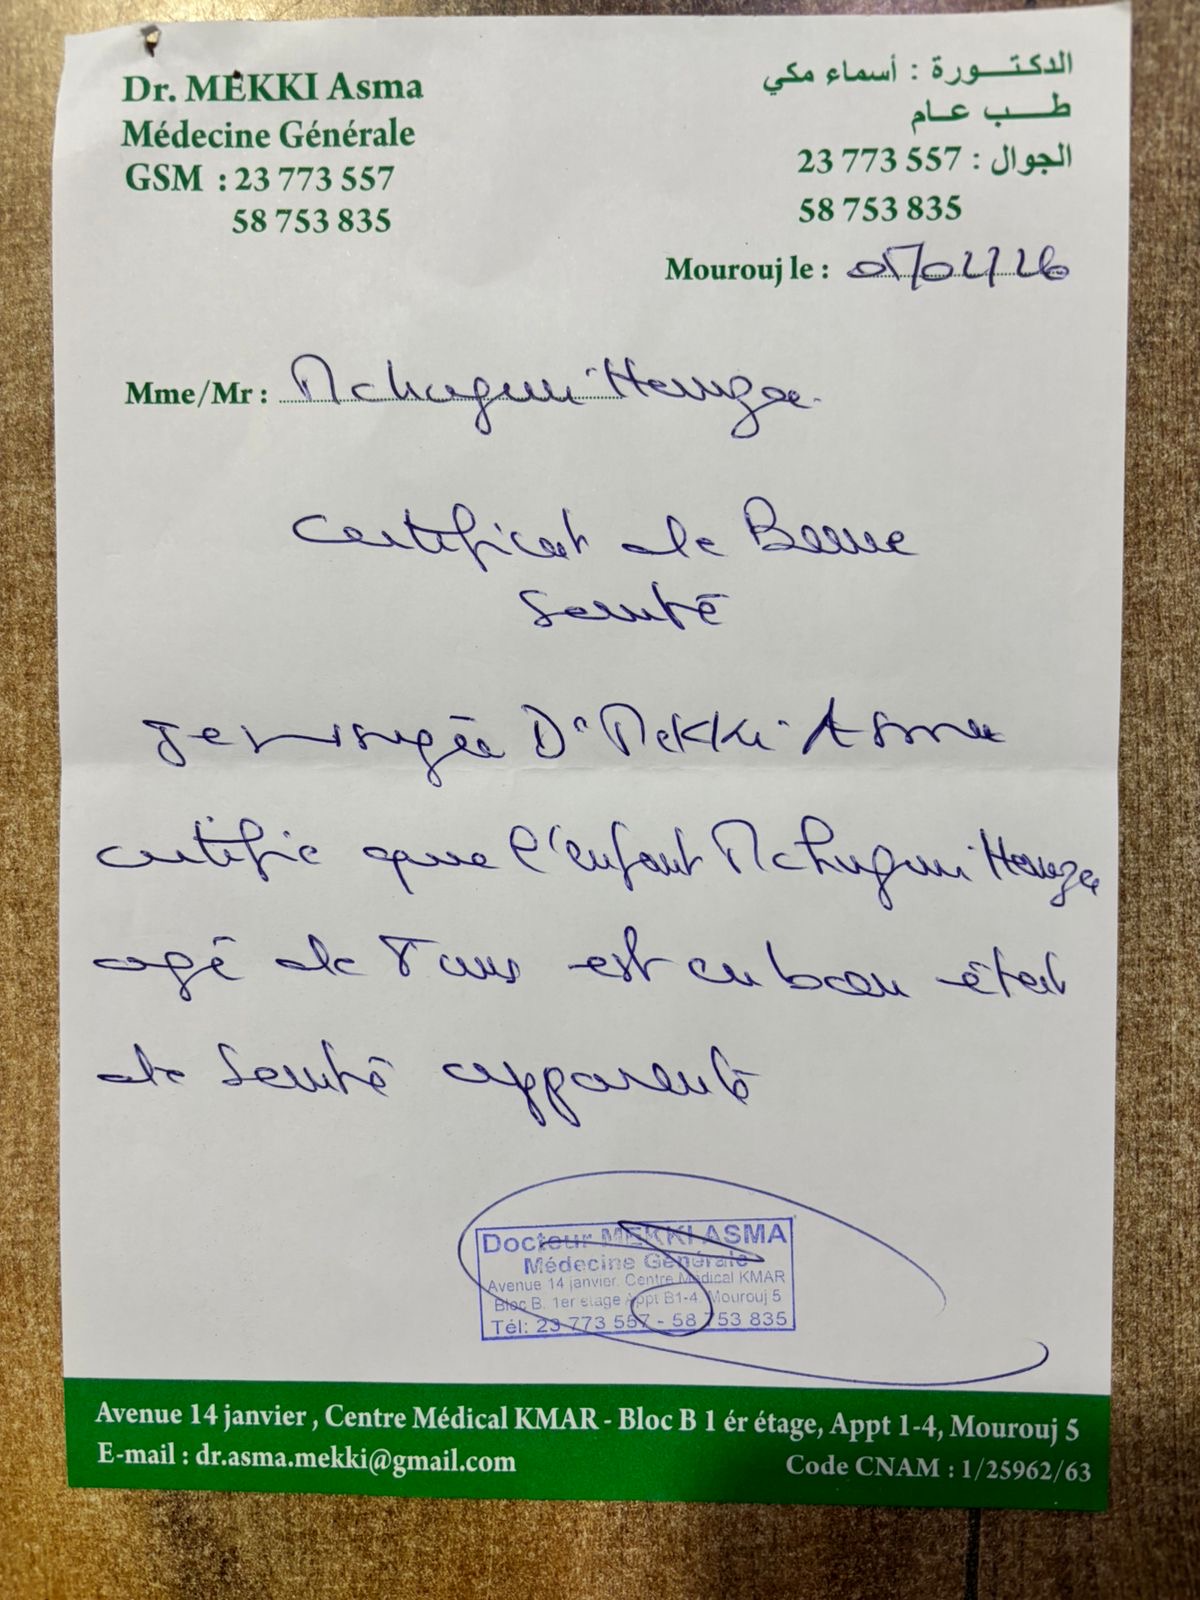 Dr. MEKKI Asma
Médecine Générale
GSM : 23 773 557
58 753 835
الدكتورة : أسماء مكي
طب عام
الجوال : 23 773 557
58 753 835
Mourouj le :
Mme/Mr : Hamza
Certificat de Bonne
Santé
Je soussignée Dr Mekki Asma
certifie que l'enfant Hamza
agé de ans est en bon état
de Santé apparente
Docteur MEKKI ASMA
Médecine Générale
Avenue 14 janvier, Centre Médical KMAR
Bloc B, 1er etage Appt B1-4, Mourouj 5
Tél: 23 773 557 - 58 753 835
Avenue 14 janvier , Centre Médical KMAR - Bloc B 1 ér étage, Appt 1-4, Mourouj 5
E-mail : dr.asma.mekki@gmail.com
Code CNAM : 1/25962/63